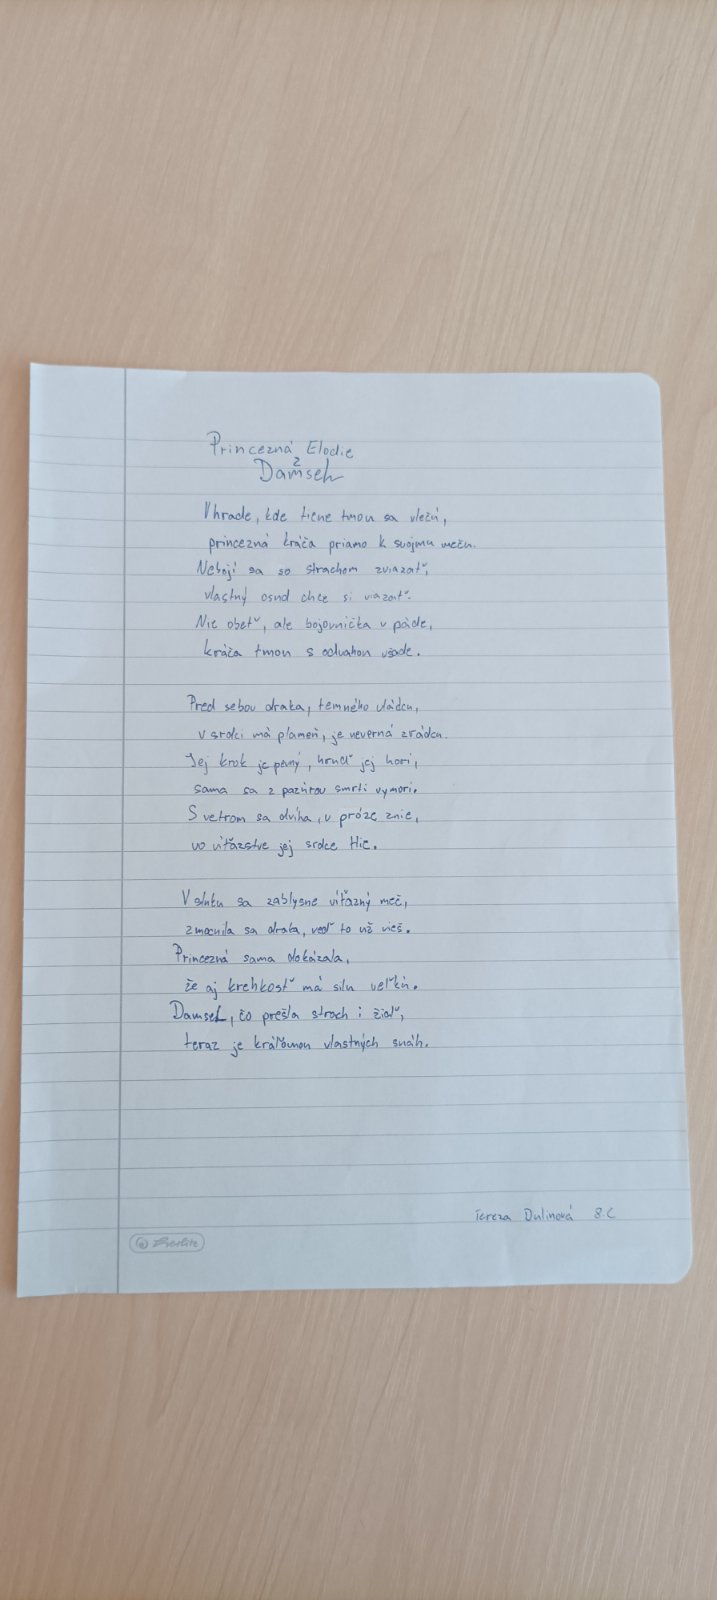 Princezná Elodie
z
Damsel
V hrade, kde tiene tmou sa vlečú,
princezná kráča priamo k svojmu meču.
Nebojí sa so strachom zviazať,
vlastný osud chce si viazať.
Nie obeť, ale bojovníčka v páde,
kráča tmou s odvahou všade.
Pred sebou draka, temného vládcu,
v srdci má plameň, je neverná zrádcu.
Jej krok je pevný, hruď jej horí,
sama sa z pazúrov smrti vymorí.
S vetrom sa dvíha, v próze znie,
vo víťazstve jej srdce tlie.
V slnku sa zablysne víťazný meč,
zmocnila sa draka, veď to už vieš.
Princezná sama dokázala,
že aj krehkosť má silu veľkú.
Damsel, čo prešla strach i žiaľ,
teraz je kráľovnou vlastných snáh.
Tereza Dulinová 8.C
Herlitz